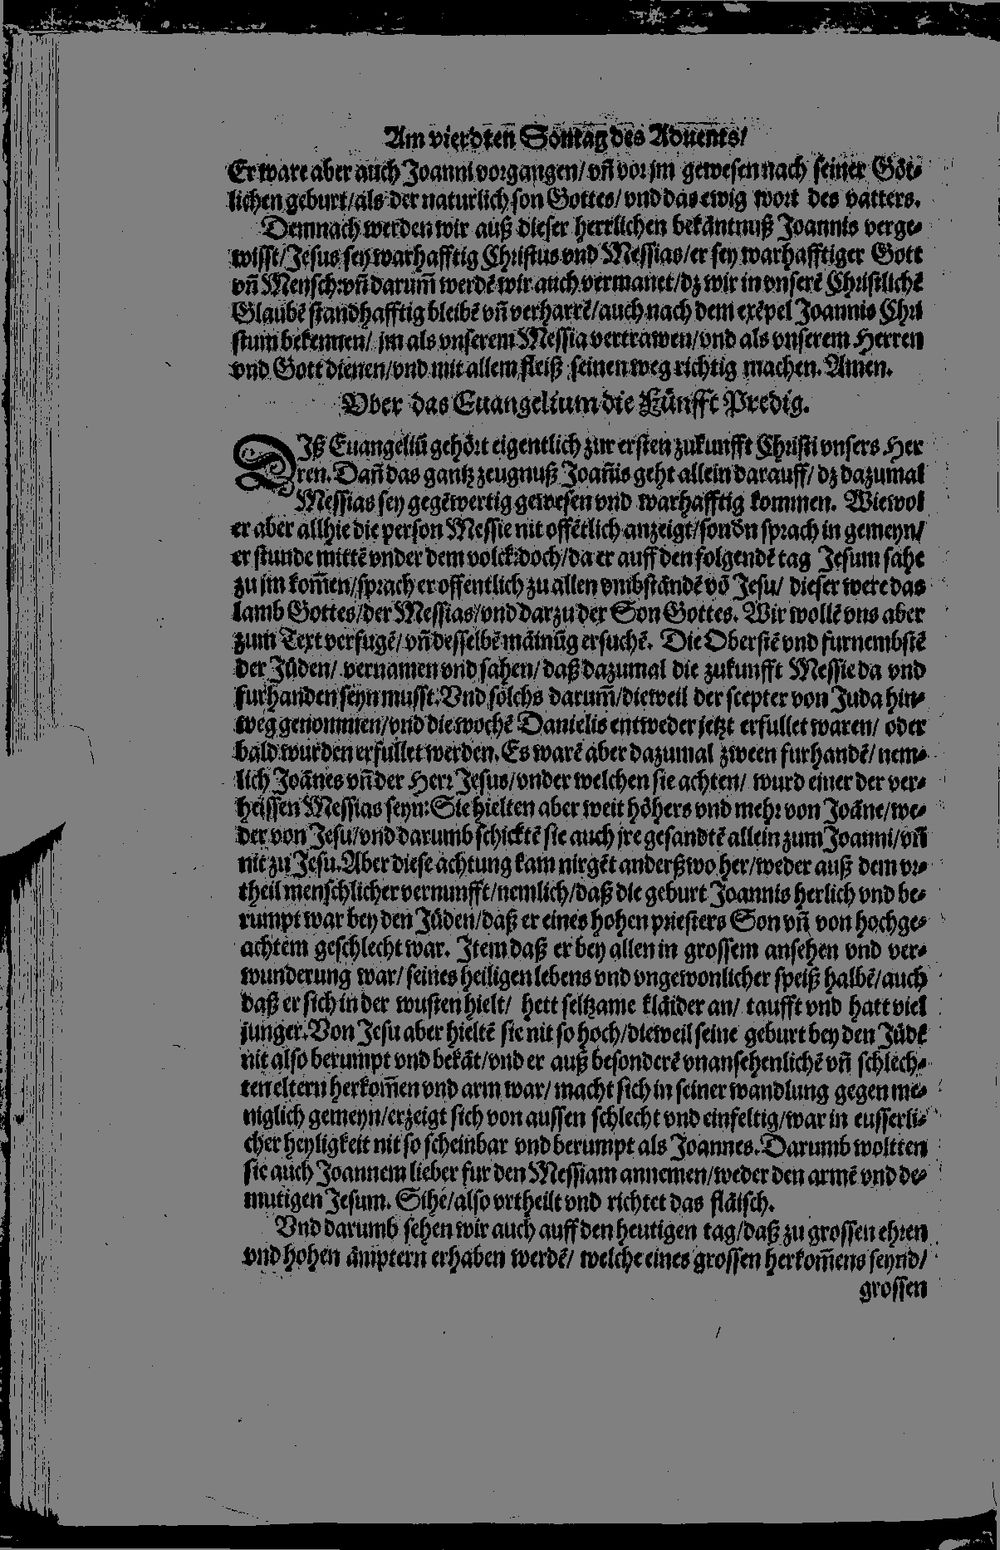 Am vierdten Sontag des Aduents/
Er ware aber auch Joanni vorgangen/ vñ vor jm gewesen nach seiner Göt⸗
lichen geburt/ als der naturlich son Gottes/ vnd das ewig wort des vatters.
Demnach werden wir auß dieser herrlichen bekäntnuß Joannis verge⸗
wisst/ Jesus sey warhafftig Christus vnd Messias/ er sey warhafftiger Gott
vñ Mensch: vñ darum̃ werdẽ wir auch vermanet/ dz wir in vnserẽ Christlichẽ
Glaubẽ standhafftig bleibẽ vñ verharrẽ/ auch nach dem exẽpel Joannis Chri
stum bekennen/ jm als vnserem Messia vertrawen/ vnd als vnserem Herren
vnd Gott dienen/ vnd mit allem fleiß seinen weg richtig machen. Amen.
Vber das Euangelium die Fünfft Predig.
DIß Euangeliũ gehört eigentlich zur ersten zukunfft Christi vnsers Her
ren. Dañ das gantz zeugnuß Joañis geht allein darauff/ dz dazumal
Messias sey gegẽwertig gewesen vnd warhafftig kommen. Wiewol
er aber allhie die person Messie nit offẽtlich anzeigt/ sondn sprach in gemeyn/
er stunde mittẽ vnder dem volck: doch/ da er auff den folgendẽ tag Jesum sahe
zu jm kom̃en/ sprach er offentlich zu allen vmbständẽ võ Jesu/ dieser were das
lamb Gottes/ der Messias/ vnd darzu der Son Gottes. Wir wollẽ vns aber
zum Text verfugẽ/ vñ desselbẽ mäinũg ersuchẽ. Die Oberstẽ vnd furnembstẽ
der Jüden/ vernamen vnd sahen/ daß dazumal die zukunfft Messie da vnd
furhanden seyn musst. Vnd solchs darum̃/ dieweil der scepter von Juda hin⸗
weg genommen/ vnd die wochẽ Danielis entweder jetzt erfullet waren/ oder
bald wurden erfullet werden. Es warẽ aber dazumal zween furhandẽ/ nem⸗
lich Joãnes vñ der Herr Jesus/ vnder welchen sie achten/ wurd einer der ver⸗
heissen Messias seyn: Sie hielten aber weit höhers vnd mehr von Joãne/ we⸗
der von Jesu/ vnd darumb schicktẽ sie auch jre gesandtẽ allein zum Joanni/ vñ
nit zu Jesu. Aber diese achtung kam nirgẽt anderßwo her/ weder auß dem vr⸗
theil menschlicher vernunfft/ nemlich/ daß die geburt Joannis herlich vnd be⸗
rumpt war bey den Jüden/ daß er eines hohen priesters Son vñ von hochge⸗
achtem geschlecht war. Item daß er bey allen in grossem ansehen vnd ver⸗
wunderung war/ seines heiligen lebens vnd vngewonlicher speiß halbẽ/ auch
daß er sich in der wusten hielt/ hett seltzame kläider an/ taufft vnd hatt viel
junger. Von Jesu aber hieltẽ sie nit so hoch/ dieweil seine geburt bey den Jüdẽ
nit also berumpt vnd bekãt/ vnd er auß besonderẽ vnansehenlichẽ vñ schlech⸗
ten eltern herkom̃en vnd arm war/ macht sich in seiner wandlung gegen me⸗
niglich gemeyn/ erzeigt sich von aussen schlecht vnd einfeltig/ war in eusserli⸗
cher heyligkeit nit so scheinbar vnd berumpt als Joannes. Darumb woltten
sie auch Joannem lieber fur den Messiam annemen/ weder den armẽ vnd de⸗
mutigen Jesum. Sihe/ also vrtheilt vnd richtet das fläisch.
Vnd darumb sehen wir auch auff den heutigen tag/ daß zu grossen ehren
vnd hohen ämptern erhaben werdẽ/ welche eines grossen herkom̃ens seynd/
grossen